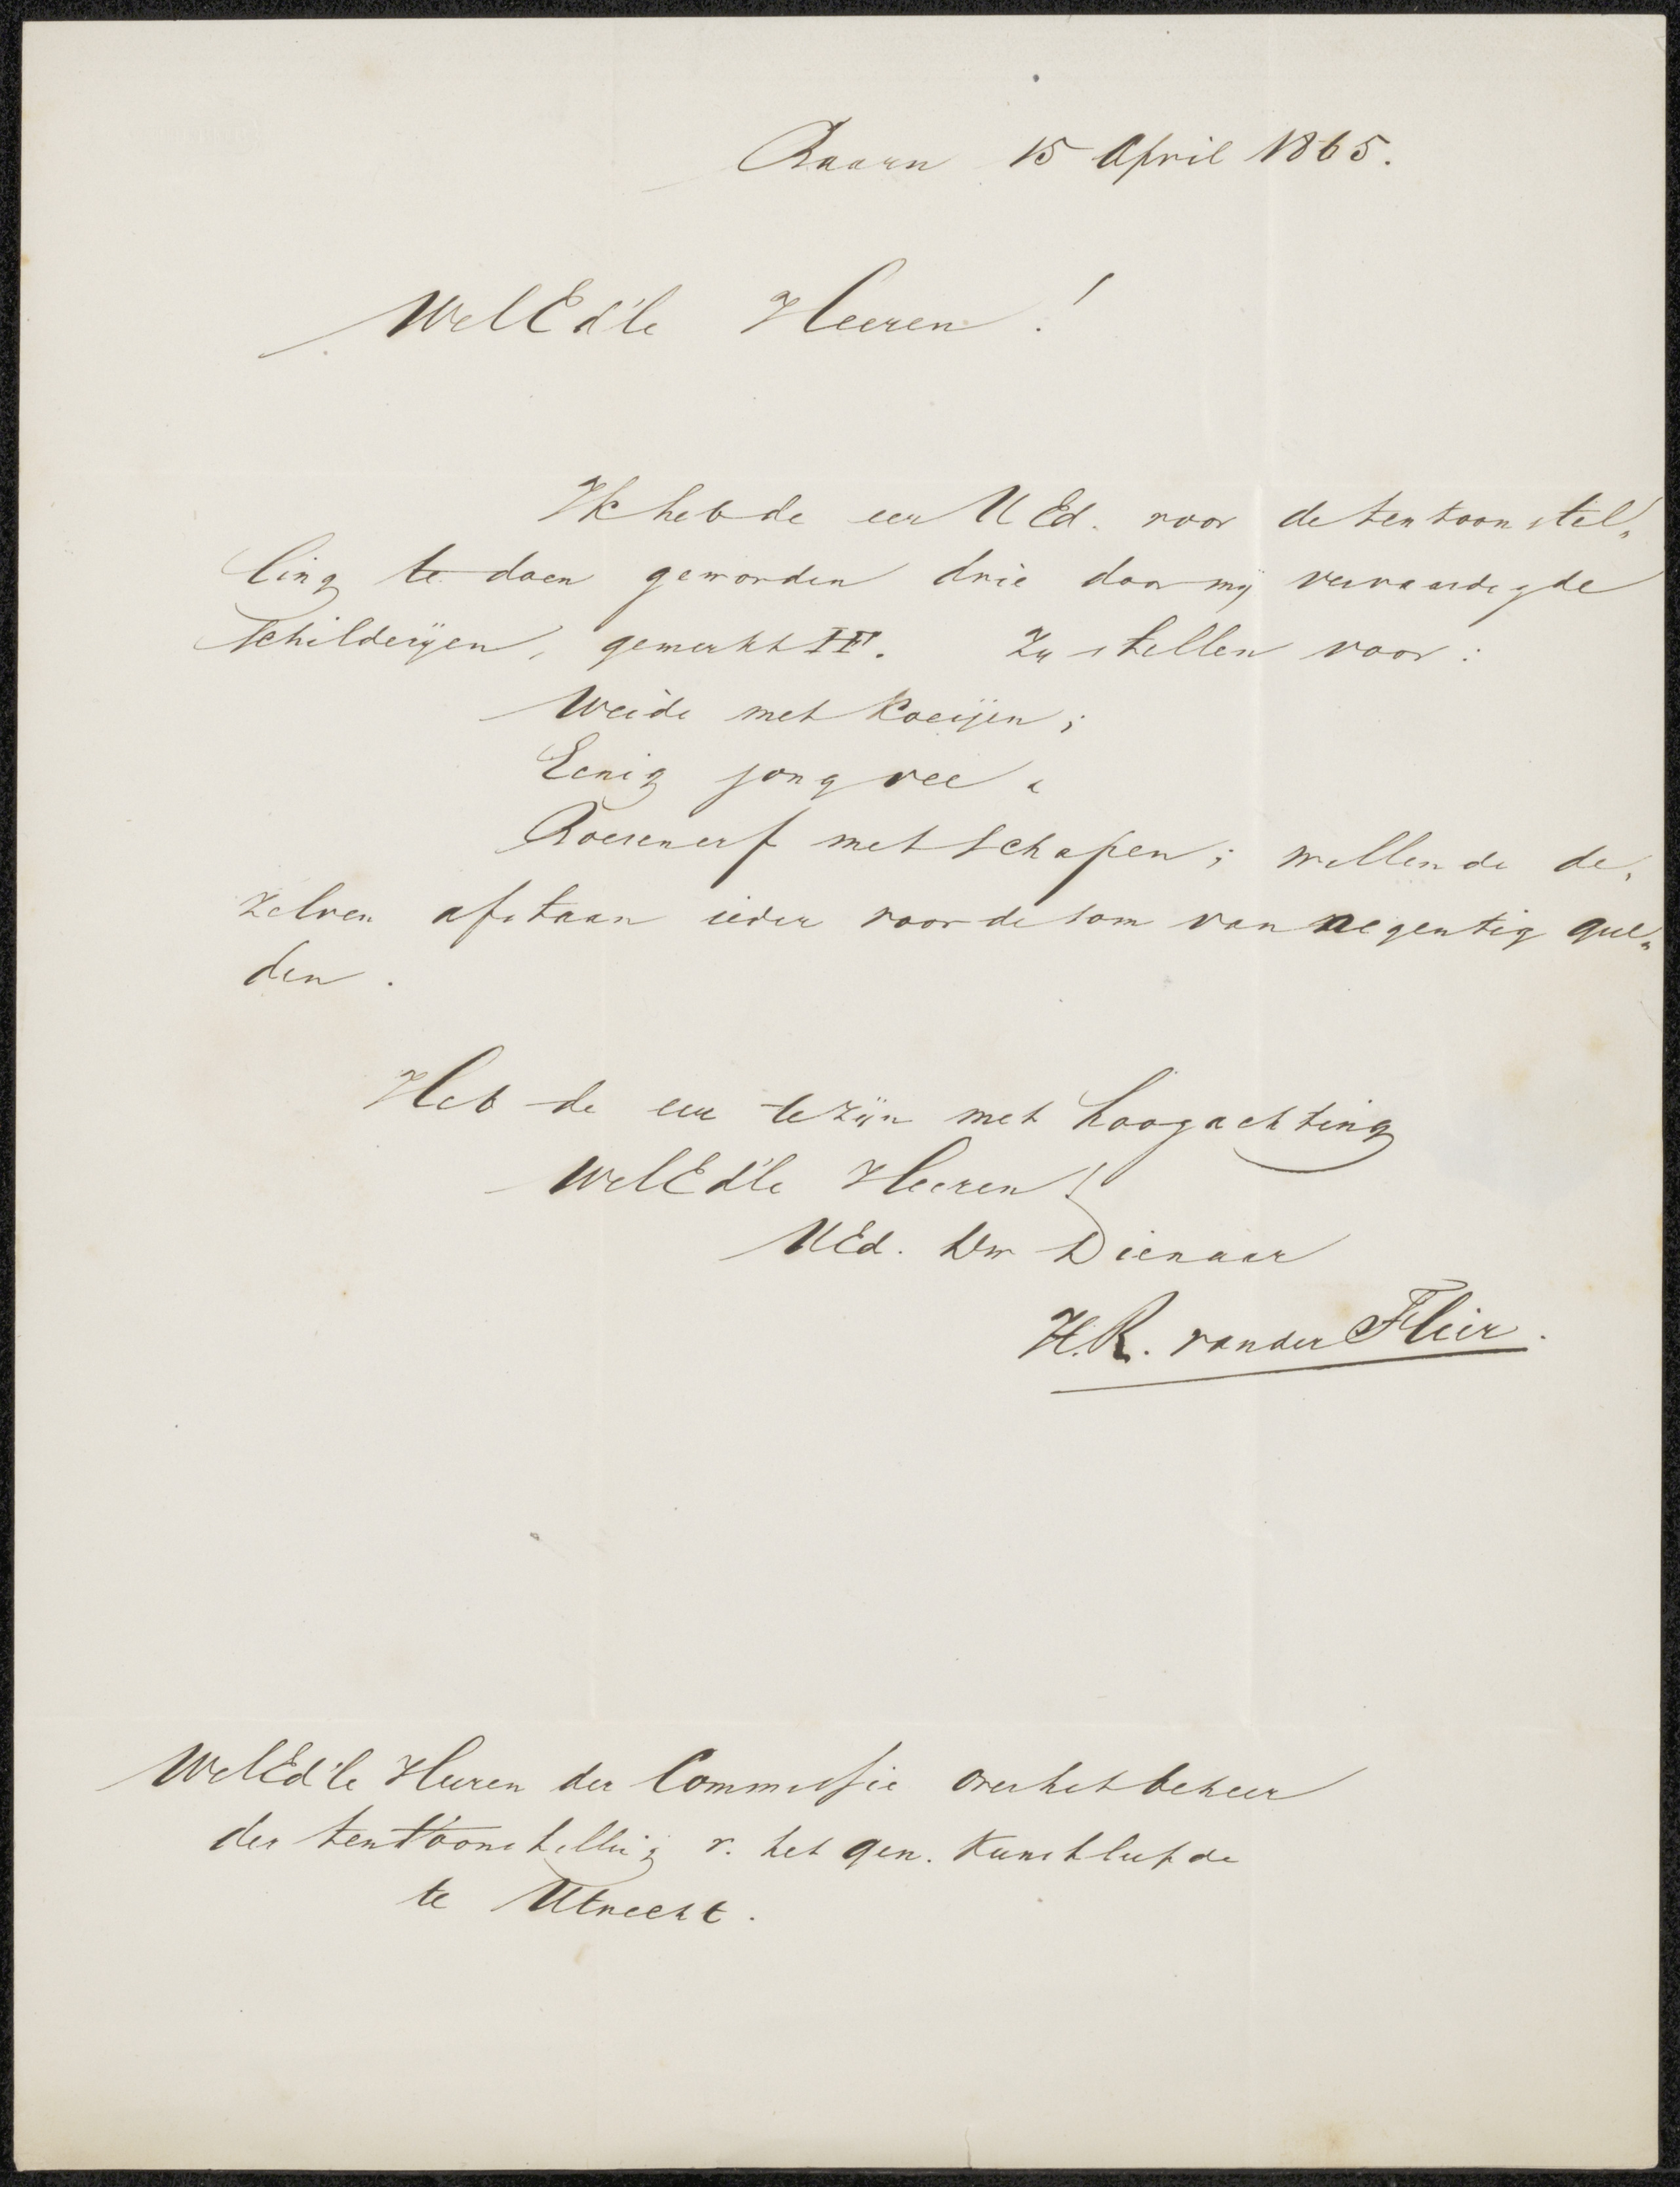 Baarn 15 April 1865.
WelEd'le Heeren!
Ik heb de eer UEd. voor de tentoonstel„
ling te doen geworden drie door mij vervaardigde
schilderijen, gemerkt IF. Zij stellen voor:
Weide met koeijen;
Eenig jong vee „
Boerenerf met schapen; willende de„
zelven afstaan ieder voor de som van negentig gul„
den.
Heb de eer te zijn met hoogachting
WelEd'le Heeren!
UEd. Dw Dienaar
H.R. van der Flier.
WelEd'le Heeren der Commissie over het beheer
der tentoonstelling v. het gen. Kunstliefde
te Utrecht.